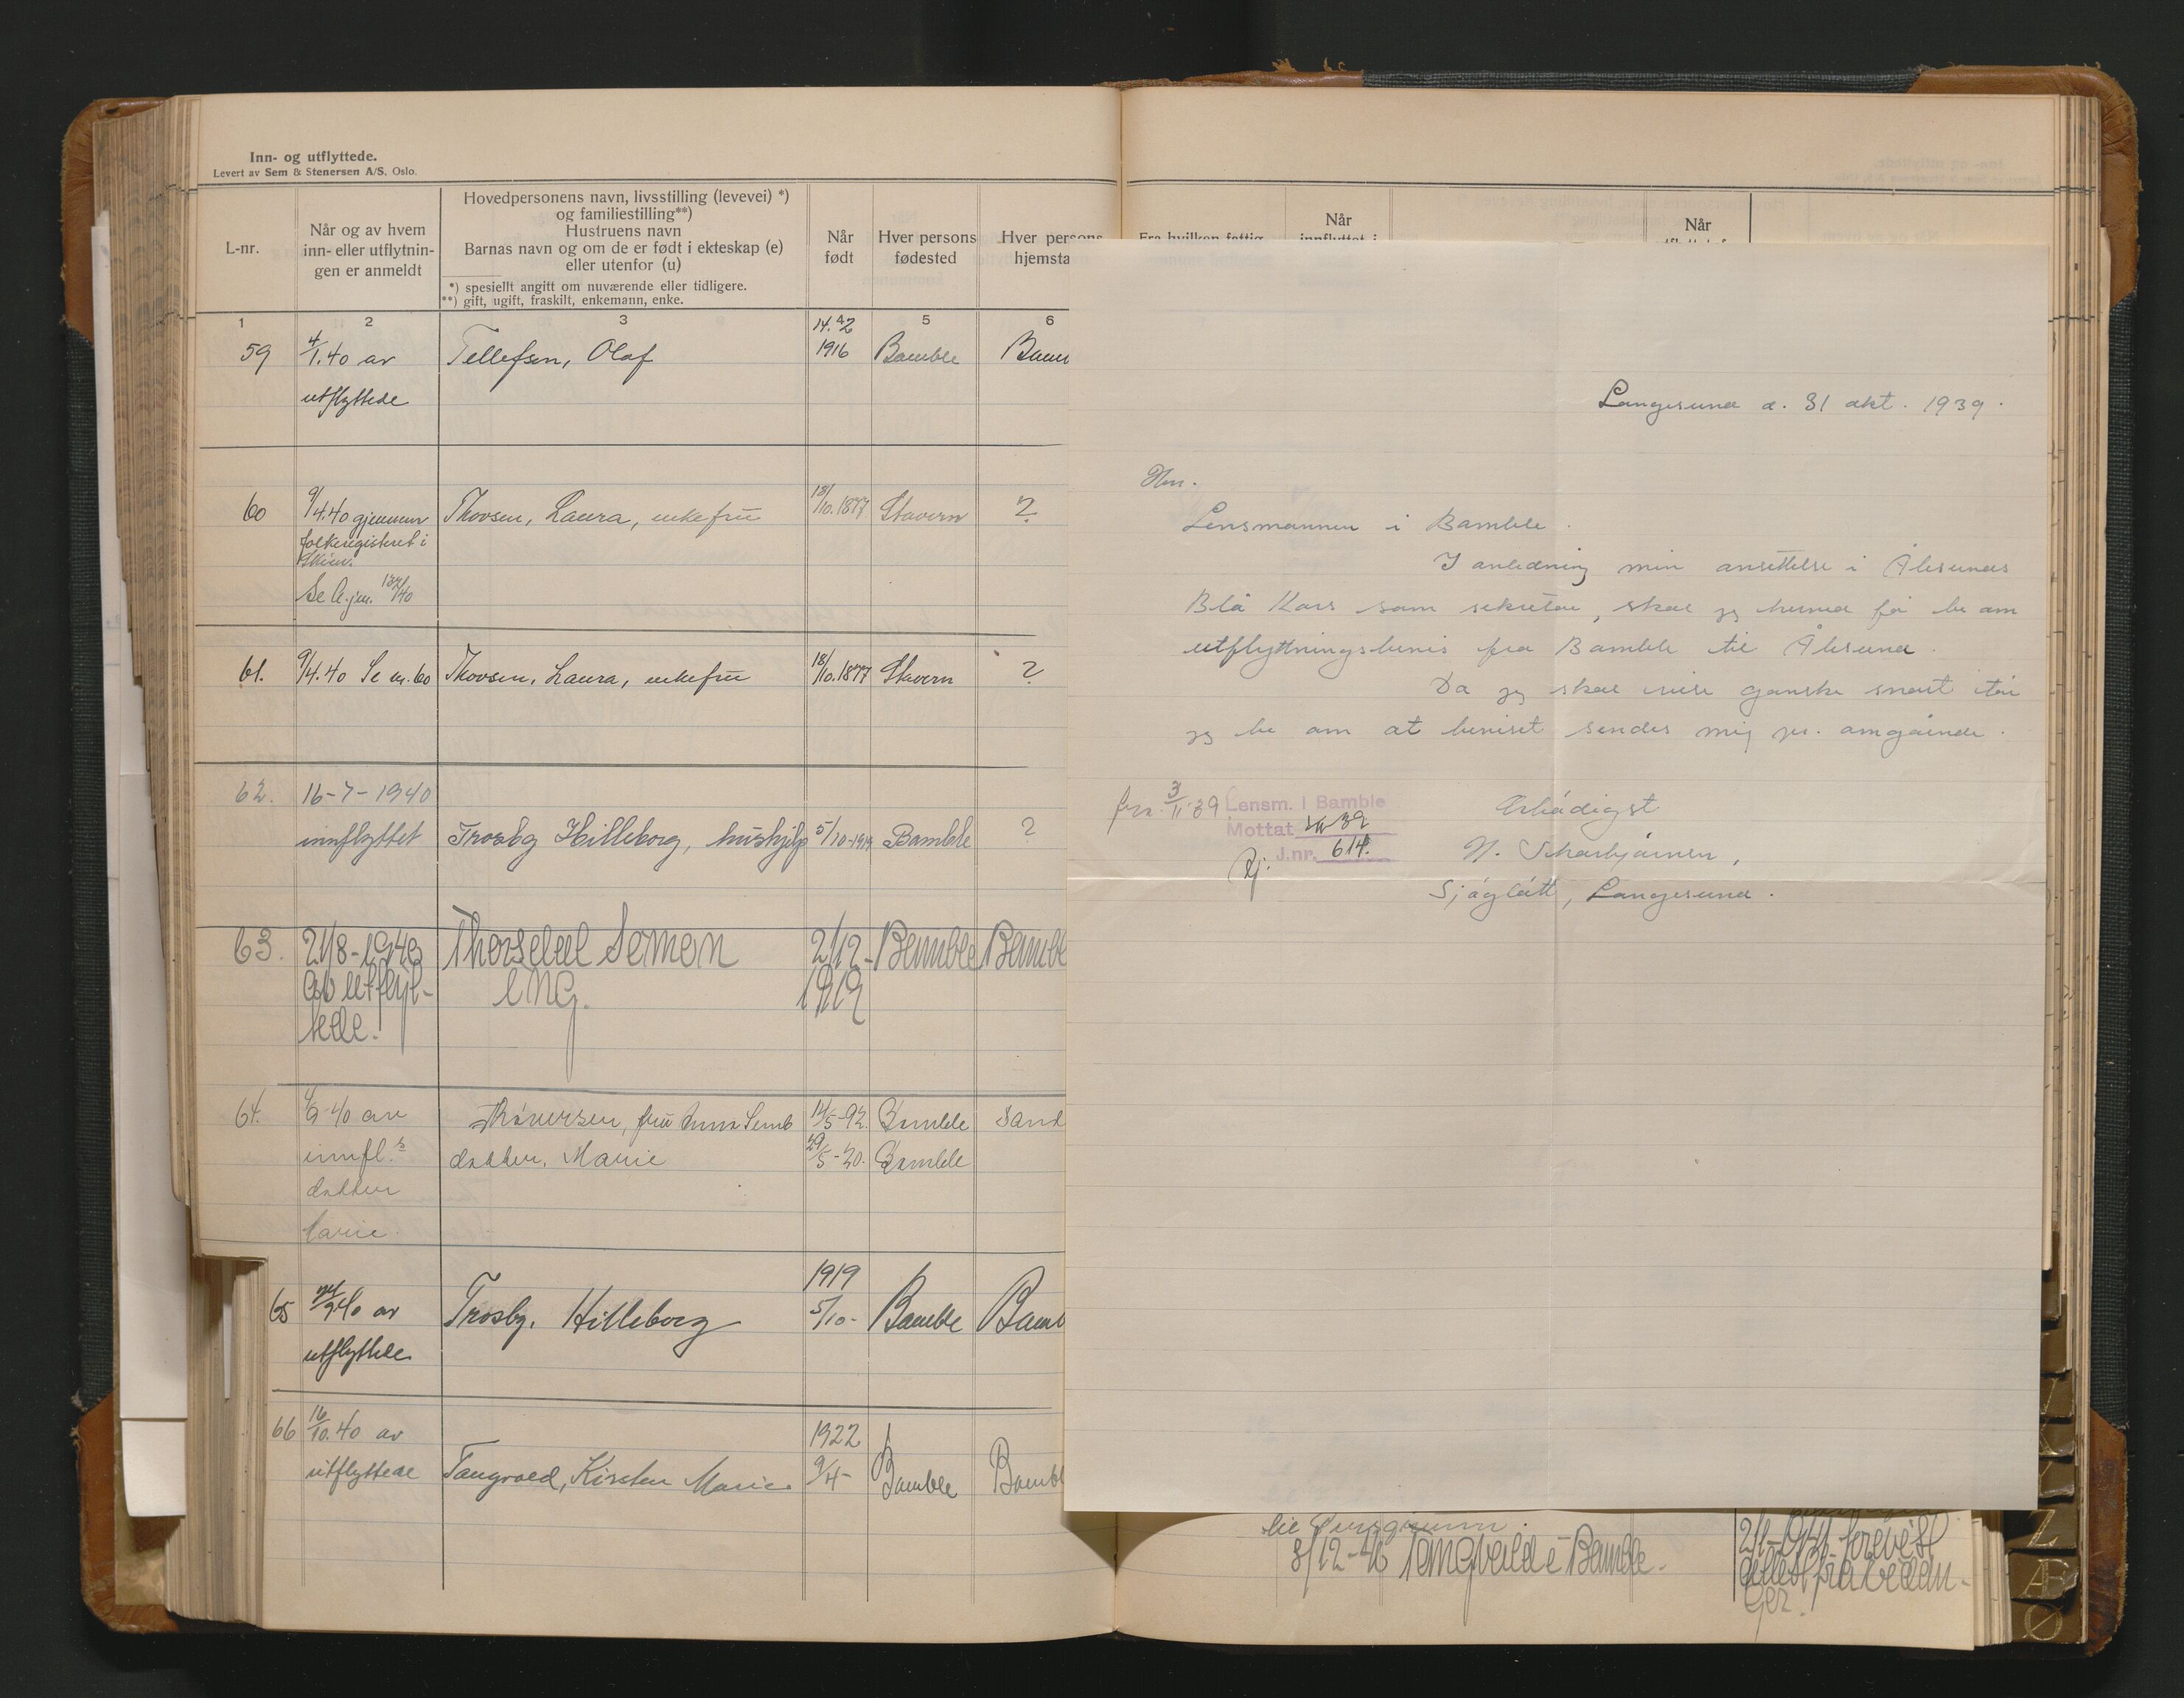 Inn- og utflyttede.
Levert av Sem & Stenersen A/S, Oslo.
L-nr.
Når og av hvem
inn- eller utflytnin-
gen er anmeldt
Hovedpersonens navn, livsstilling (levevei) *)
og familiestilling**)
Hustruens navn
Barnas navn og om de er født i ekteskap (e)
eller utenfor (u)
*) spesielt angitt om nuværende eller tidligere.
**) gift, ugift, fraskilt, enkemann, enke.
Når
født
Hver persons
fødested
Hver persons
hjemsta
Fra hvilken fattig
Når
innflyttet i
Når
1 2 3 4 5 6
59 4/1.40 av Tellefsen, Olaf 14. 2 1916 Bamble Bam
utflyttede
60 9/4.40 gjennem Thovsen, Laura, enkefru 18/10.1877 Stavern ?
folkeregisteret i
Skien.
Se
61. 9/4.40 Se nr. 60 Thovsen, Laura, enkefru 18/10.1877 Stavern ?
62. 16-7-1940
innflyttet Trosby Hilleborg, hushjelp 5/10-1919 Bamble ?
63. 21/8-1940 Thorsdal Seman 2/12- Bamble Bamble
av utflyt- eng. 1919
tede.
64. 9-40 av fru Anna 14/5-92. Bamble Sand
innfl.s datter, Marie 29/5-20. Bamble
datter
Marie.
1919
65 9.40 av Trosby, Hilleborg 5/10- Bamble Bamb
utflyttede
66 16/10.40 av 1922
utflyttede Tangvald, Kirsten Marie. 9/4- Bamble Bambl
Langesund d. 31 okt. 1939.
Hr.
Lensmannen i Bamble.
I anledning min ansettelse i Ålesunds
Blå Kors som sekretær, skal jeg herved få be om
utflytningsbevis fra Bamble til Ålesund.
Da jeg skal reise ganske snart tør
jeg be om at beviset sendes mig pr. omgående.
3/11-39
Lensm. i Bamble
Mottat 39
J.nr. 614.
Ærbødigst
N.
Sjøglått, Langesund.
til Porsgrunn.
8/12-40 Tangvald i Bamble.
fra
Z
Æ
Ø